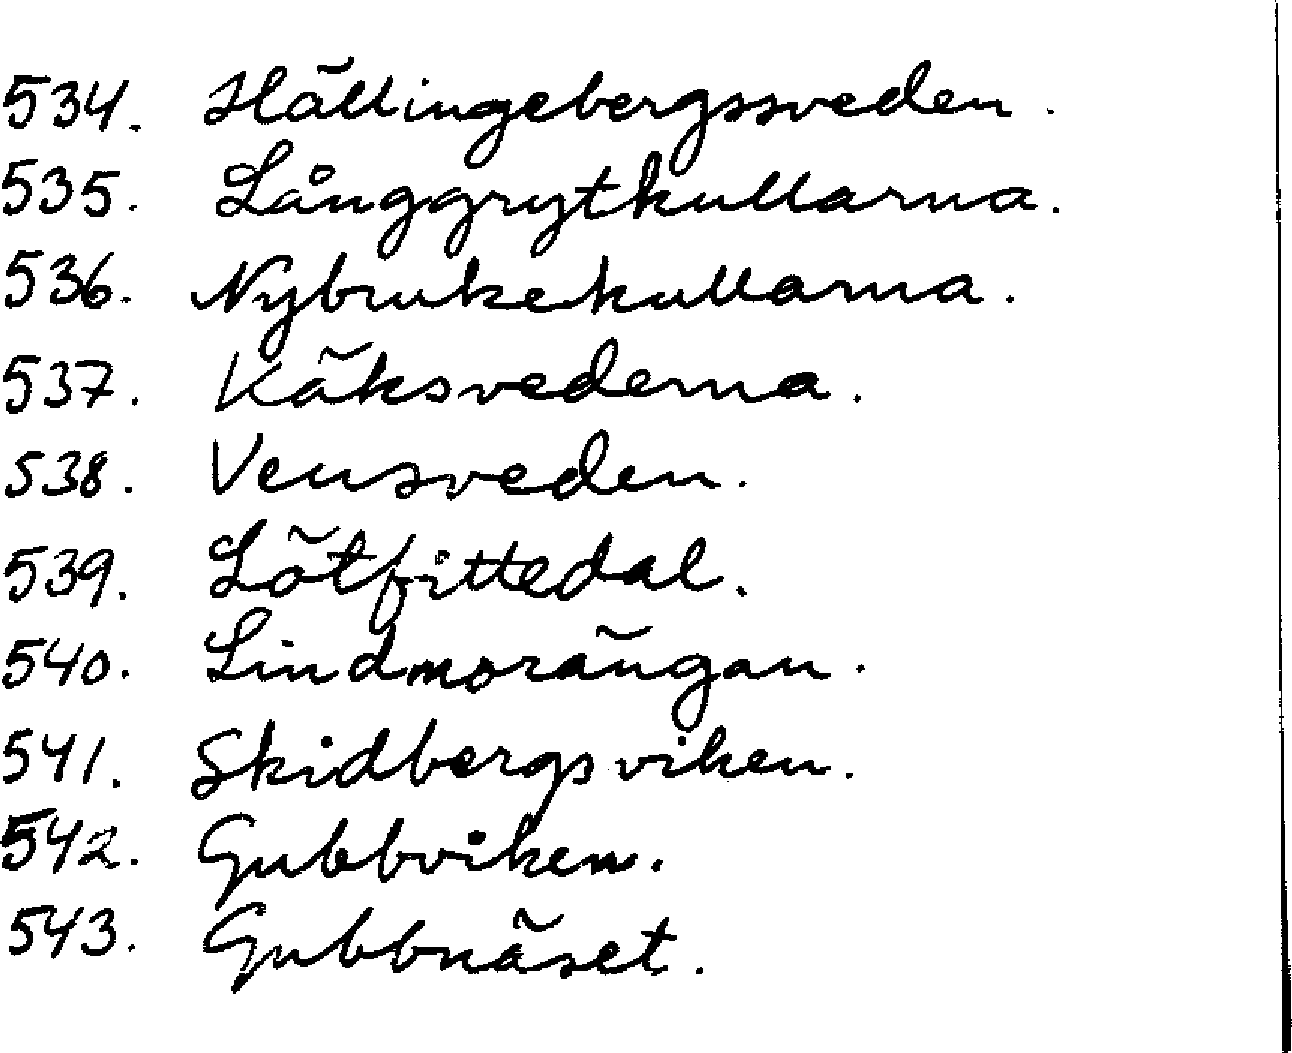 534. Hällingebergssveden.
535. Långgrytkullarna.
536. Nybrukekullarna.
537. Käksvederna.
538. Vensveden.
539. Lötfittedal.
540. Lindmorängan.
541. Skidbergsviken.
542. Gubbviken.
543. Gubbnäset.